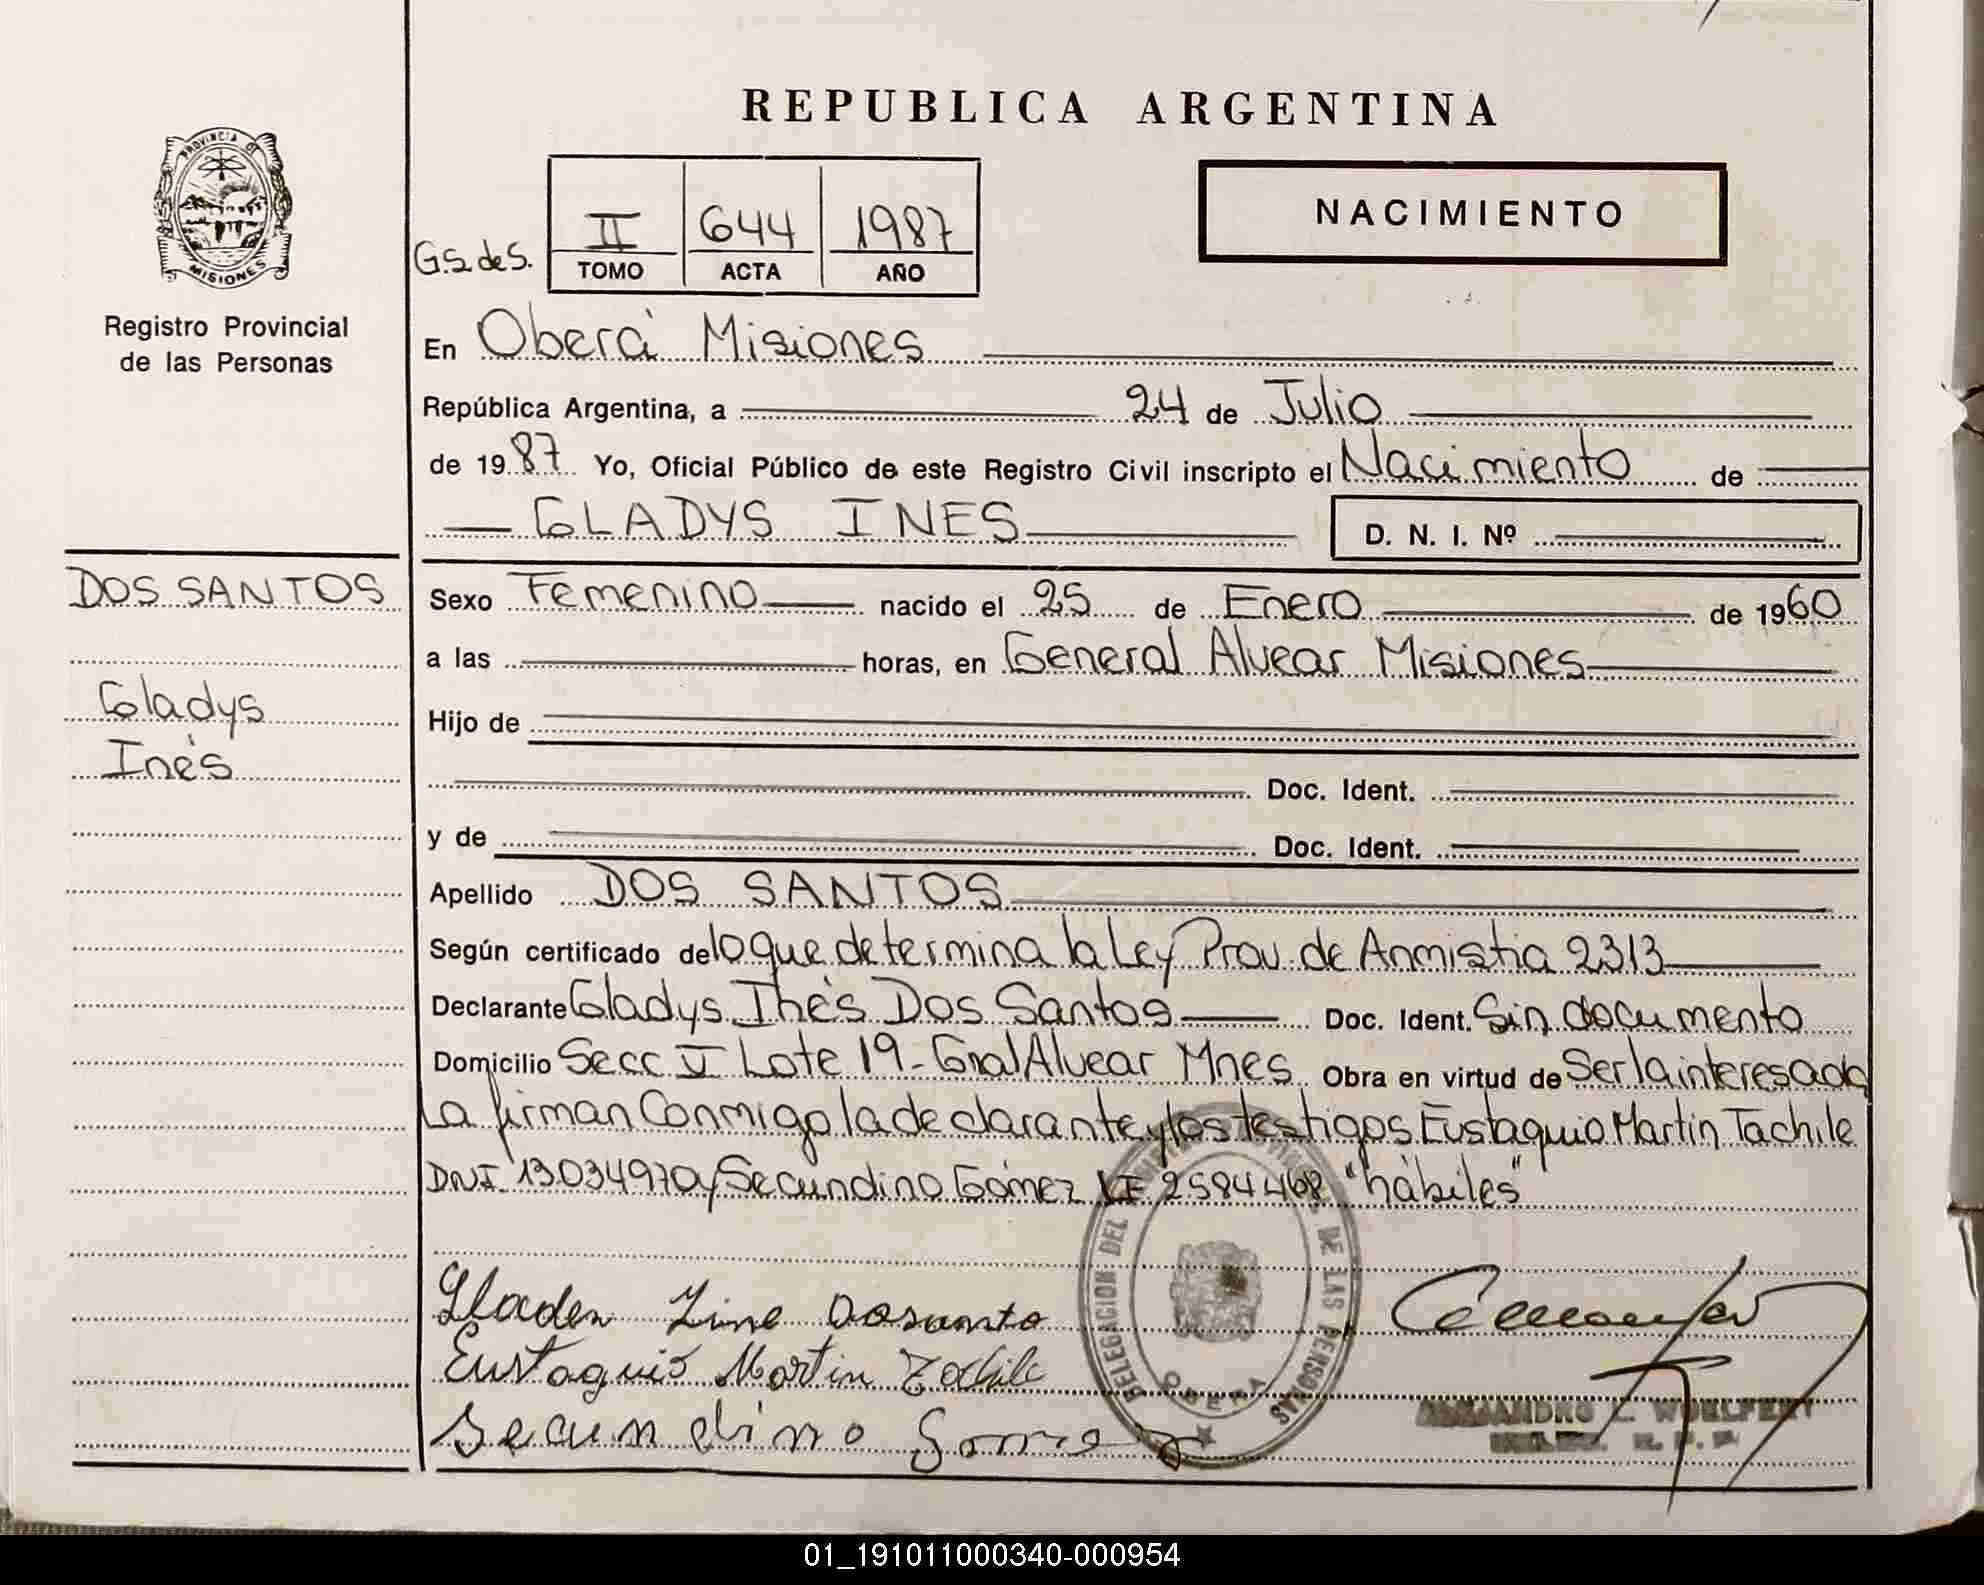 REPUBLICA ARGENTINA
PROVINCIA DE
MISIONES
Registro Provincial
de las Personas
G.S. de S.
II 644 1987
TOMO ACTA AÑO
NACIMIENTO
En Oberá Misiones
República Argentina, a 24 de Julio
de 1987 Yo, Oficial Público de este Registro Civil inscripto el Nacimiento de
GLADYS INES
D. N. I. Nº
DOS SANTOS
Gladys
Inés
Sexo Femenino nacido el 25 de Enero de 1960
a las horas, en General Alvear Misiones
Hijo de
Doc. Ident.
y de Doc. Ident.
Apellido DOS SANTOS
Según certificado de lo que determina la Ley Prov. de Anmistia 2313
Declarante Gladys Inés Dos Santos Doc. Ident. Sin documento
Domicilio Secc V Lote 19 - Gral Alvear Mnes Obra en virtud de Ser la interesada
La firman Conmigo la declarante y los testigos Eustaquio Martin Tachile
DNI 13034970 y Secundino Gómez LE 2584468 "hábiles"
Dosanto
Eustaquio Martin
Secundino Gomez
DELEGACION DEL DE LAS PERSONAS
OBERA
01_191011000340-000954